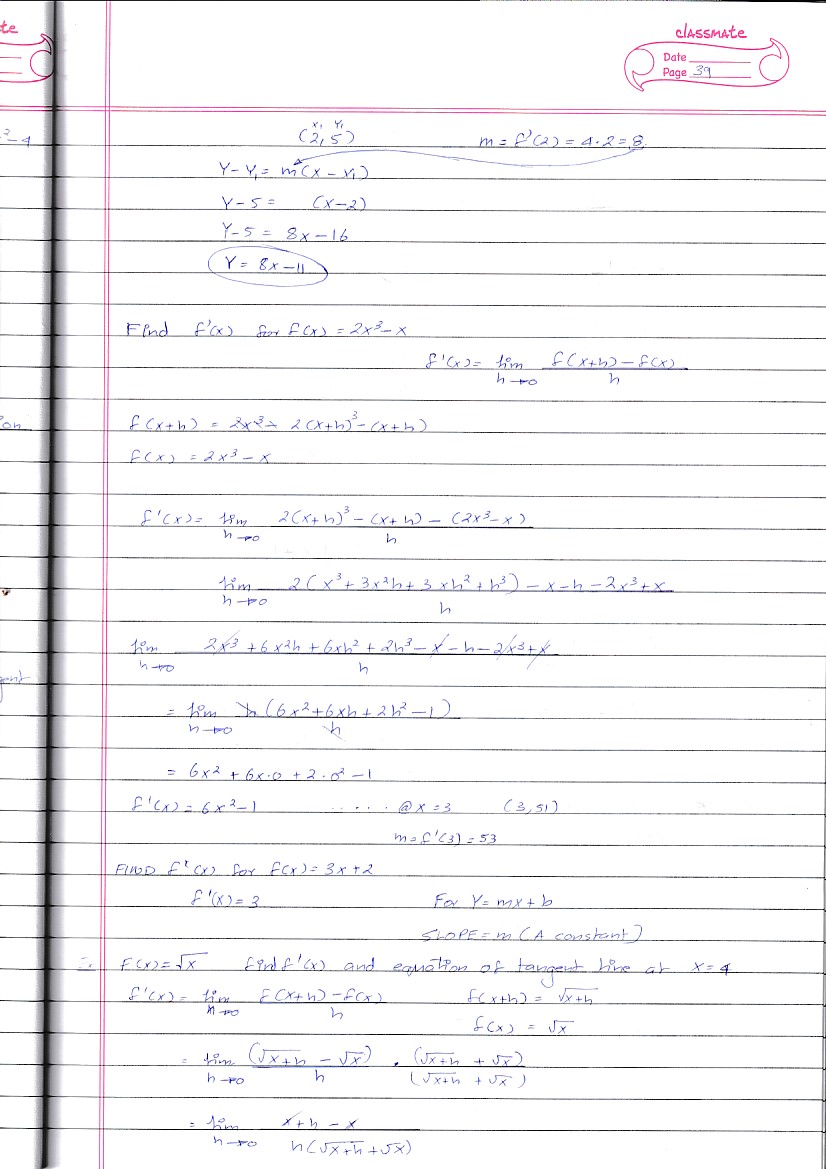 te
classmate
Date
Page 39
²-4
x₁ y₁
(2, 5) m = f'(2) = 4·2 = 8.
Y - Y₁ = m(x - x₁)
Y - 5 = (x-2)
Y-5 = 8x-16
Y = 8x-11
Find f'(x) for f(x) = 2x³-x
f'(x) = lim h→0 f(x+h)-f(x) / h
ion
f(x+h) = 2x³- 2(x+h)³-(x+h)
f(x) = 2x³-x
f'(x) = lim h→0 2(x+h)³-(x+h)-(2x³-x) / h
lim h→0 2(x³+3x²h+3xh²+h³)-x-h-2x³+x / h
lim h→0 2x³+6x²h+6xh²+2h³-x-h-2x³+x / h
gent
= lim h→0 h(6x²+6xh+2h²-1) / h
= 6x²+6x·0+2·0²-1
f'(x) = 6x²-1 ..... @x=3 (3,51)
m=f'(3)=53
FIND f'(x) for f(x)=3x+2
f'(x)=3 For Y=mx+b
SLOPE=m (A constant)
F(x)=√x find f'(x) and equation of tangent line at x=4
f'(x) = lim h→0 F(x+h)-f(x) / h f(x+h) = √x+h
f(x) = √x
= lim h→0 (√x+h - √x) / h · (√x+h + √x) / (√x+h + √x)
= lim h→0 x+h-x / h(√x+h+√x)